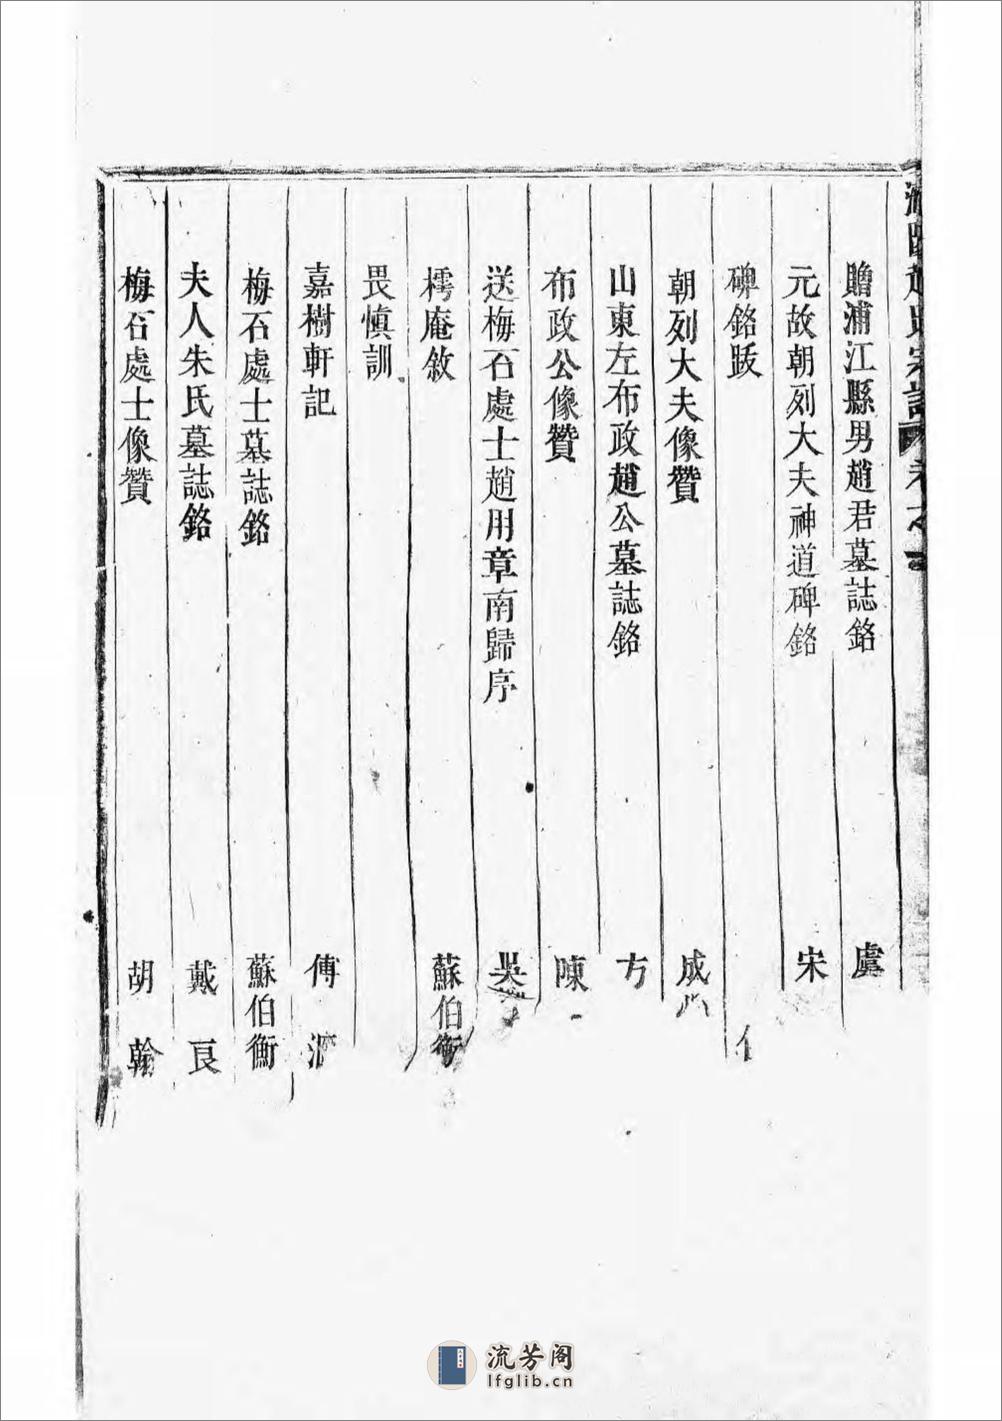 趙氏宗譜 卷之
贈浦江縣男趙君墓誌銘 虞
元故朝列大夫神道碑銘 宋
碑銘跋
朝列大夫像贊 成
山東左布政趙公墓誌銘 方
布政公像贊 陳
送梅石處士趙用章南歸序 吳
樗庵敘 蘇伯衡
畏慎訓
嘉樹軒記 傅
梅石處士墓誌銘 蘇伯衡
夫人朱氏墓誌銘 戴良
梅石處士像贊 胡翰
流芳阁
lfglib.cn